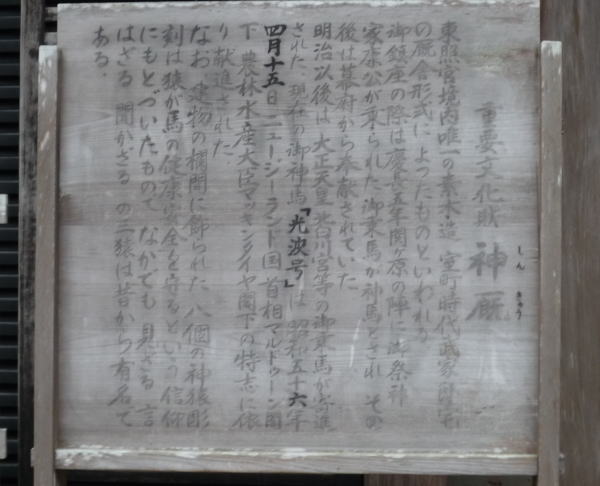 重要文化財 神厩
しんきゅう
東照宮境内唯一の素木造 室町時代武家邸宅
の厩舎形式によったものといわれる
御鎮座の際は慶長五年関ヶ原の陣に御祭神
家康公が乗られた御乗馬が神馬とされ その
後は幕府から奉献されていた
明治以後は大正天皇 北白川宮等の御乗馬が寄進
された、現在の御神馬「光波号」は 昭和五十六年
四月十五日 ニュージーランド国首相マルドゥーン閣
下 農林水産大臣マッキンタイヤ閣下の特志に依
り献進された
なお 建物の欄間に飾られた 八個の神猿彫
刻は猿が馬の健康安全を守るという信仰
にもとづいたもので なかでも 見ざる 言
はざる 聞かざる の三猿は昔から有名で
ある.